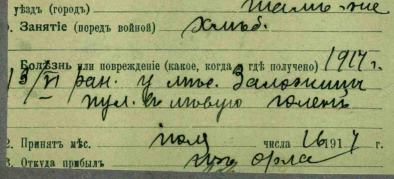 уѣздъ (городъ)
. Занятіе (передъ войной) Хлѣб.
Болѣзнь или поврежденіе (какое, когда, гдѣ получено) 1917 г.
ран. у мѣс. Заложицы
пул. въ лѣвую голень
2. Принятъ мѣс. іюля числа 16 1917 г.
3. Откуда прибылъ Орла